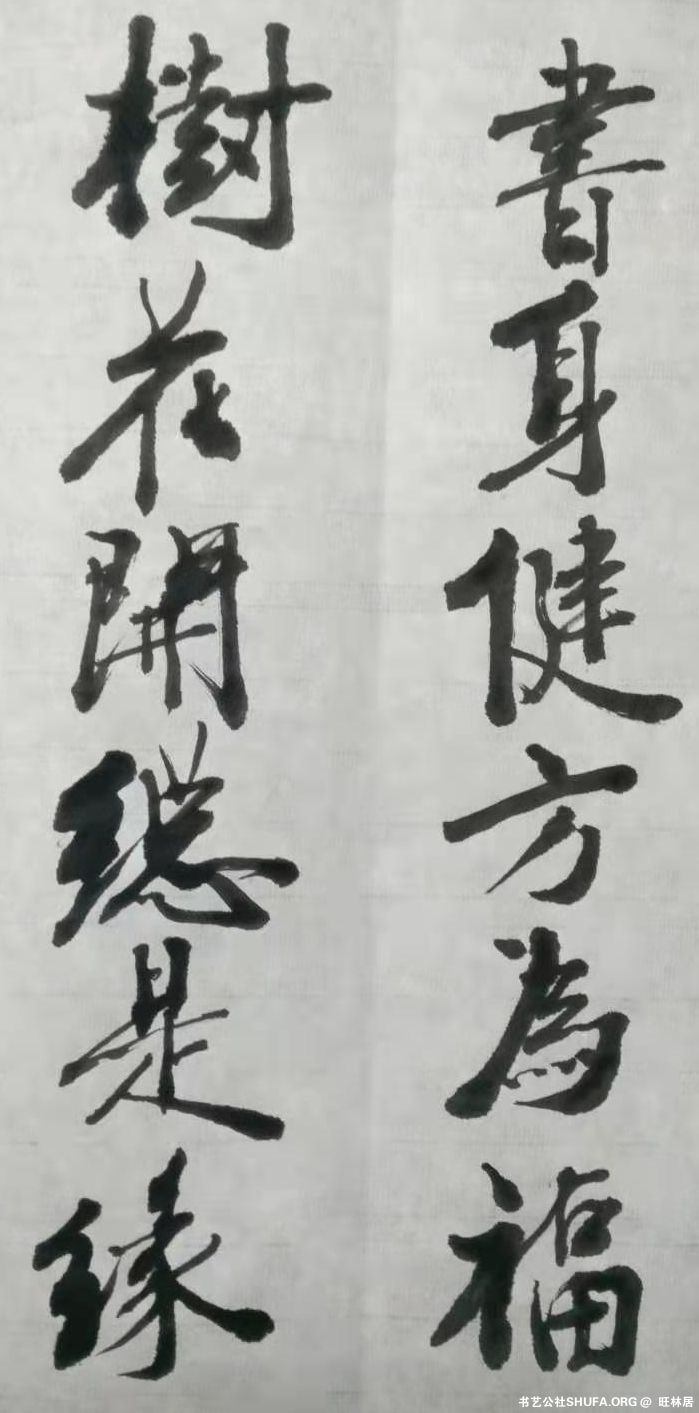 書身健方為福
樹花開總是緣
书艺公社SHUFA.ORG @ 旺林居